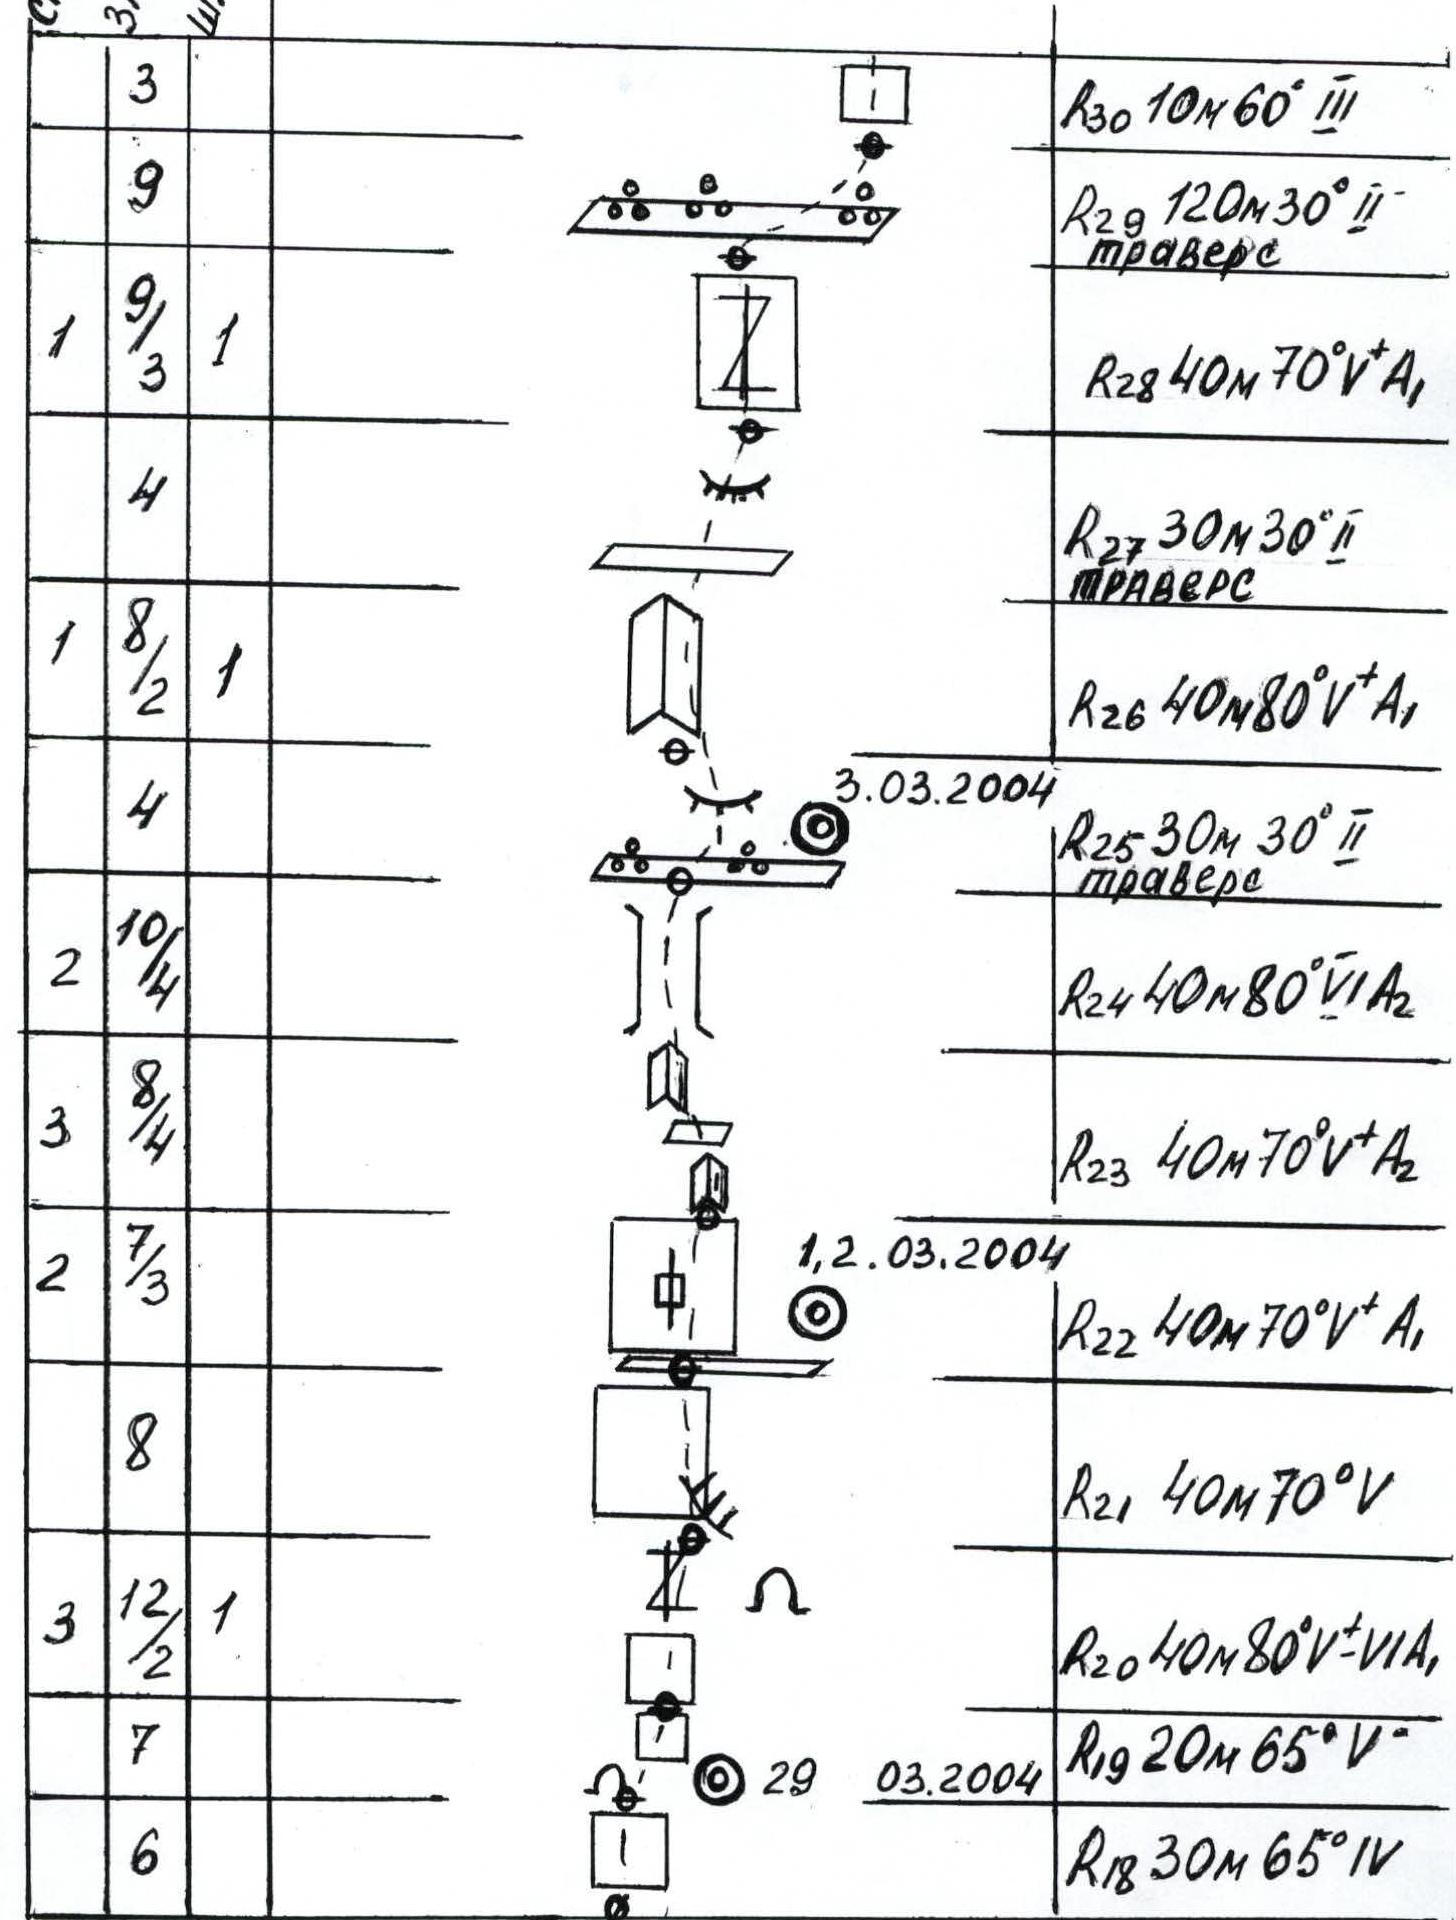 3 R30 10м 60° III
9 R29 120м 30° II
траверс
1 9/3 1 R28 40м 70° V⁺ A1
4 R27 30м 30° II
траверс
1 8/2 1 R26 40м 80° V⁺ A1
3.03.2004
4 R25 30м 30° II
траверс
2 10/4 R24 40м 80° VI A2
3 8/4 R23 40м 70° V⁺ A2
1,2.03.2004
2 7/3 R22 40м 70° V⁺ A1
8 R21 40м 70° V
3 12/2 1 R20 40м 80° V⁺-VI A1
7 R19 20м 65° V⁻
29 03.2004
6 R18 30м 65° IV